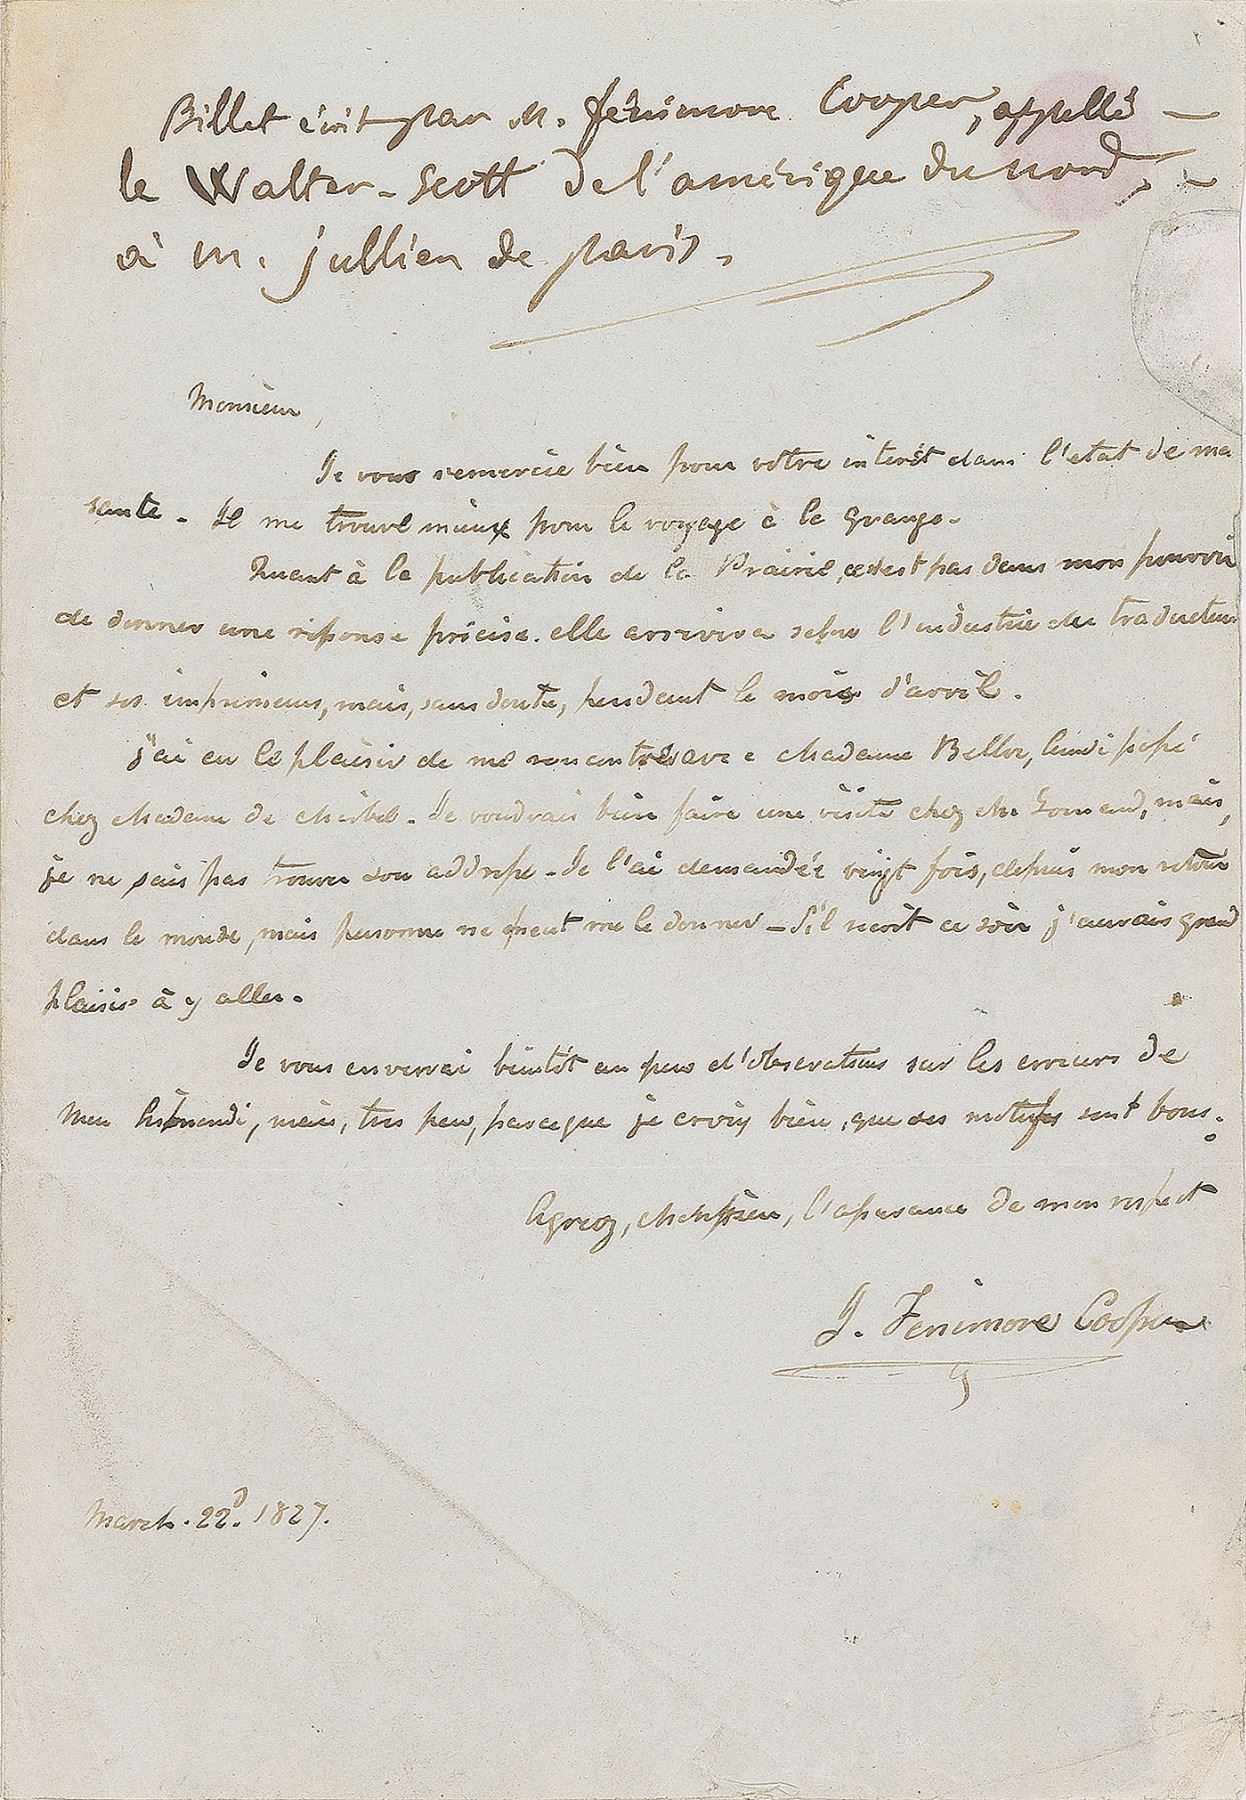 Billet écrit par M. fénimore Cooper, appellé —
le Walter-Scott de l'amérique du nord, —
à m. jullien de paris.
Monsieur,
Je vous remercie bien pour vôtre interêt dans l'etat de ma
sante. Je me trouve mieux pour le voyage à la grange.
Quant à la publication de la Prairie, ce n'est pas dans mon pouvoir
de donner une réponse précise. elle arrivera selon l'industrie du traducteur
et ses imprimeurs, mais, sans doute, pendant le mois d'avril.
j'ai eu le plaisir de me rencontrer avec Madame Belloc, lundi passé
chez Madame de . Je voudrais bien faire une visite chez , mais,
je ne sais pas trouver son addresse. Je l'ai demandée vingt fois, depuis mon retour
dans le monde, mais personne ne peut me le donner — S'il recoit ce soir j'aurais grand
plaisir à y aller.
Je vous enverrai bientôt un peu d'observations sur les erreurs de
, mais, tres peu, parceque je crois bien, que ses motifs sont bons.
Agreez, Monsieur, l'assurance de mon respect
J. Fenimore Cooper
March. 22d. 1827.